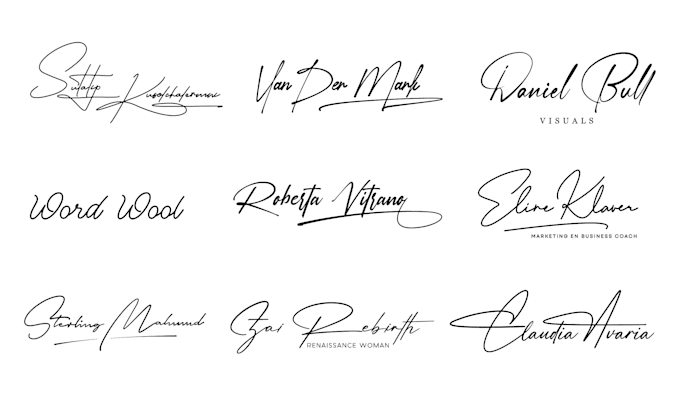 Sutatip Kusolchalermai
Van Der Mark
Daniel Bull
VISUALS
Word Wool
Roberta Vitrano
Eline Klaver
MARKETING EN BUSINESS COACH
Sterling Mahmud
Zai Rebirth
RENAISSANCE WOMAN
Claudia Nvaria